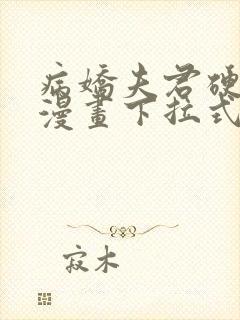 病嬌夫君硬
漫畫下拉式
寂木